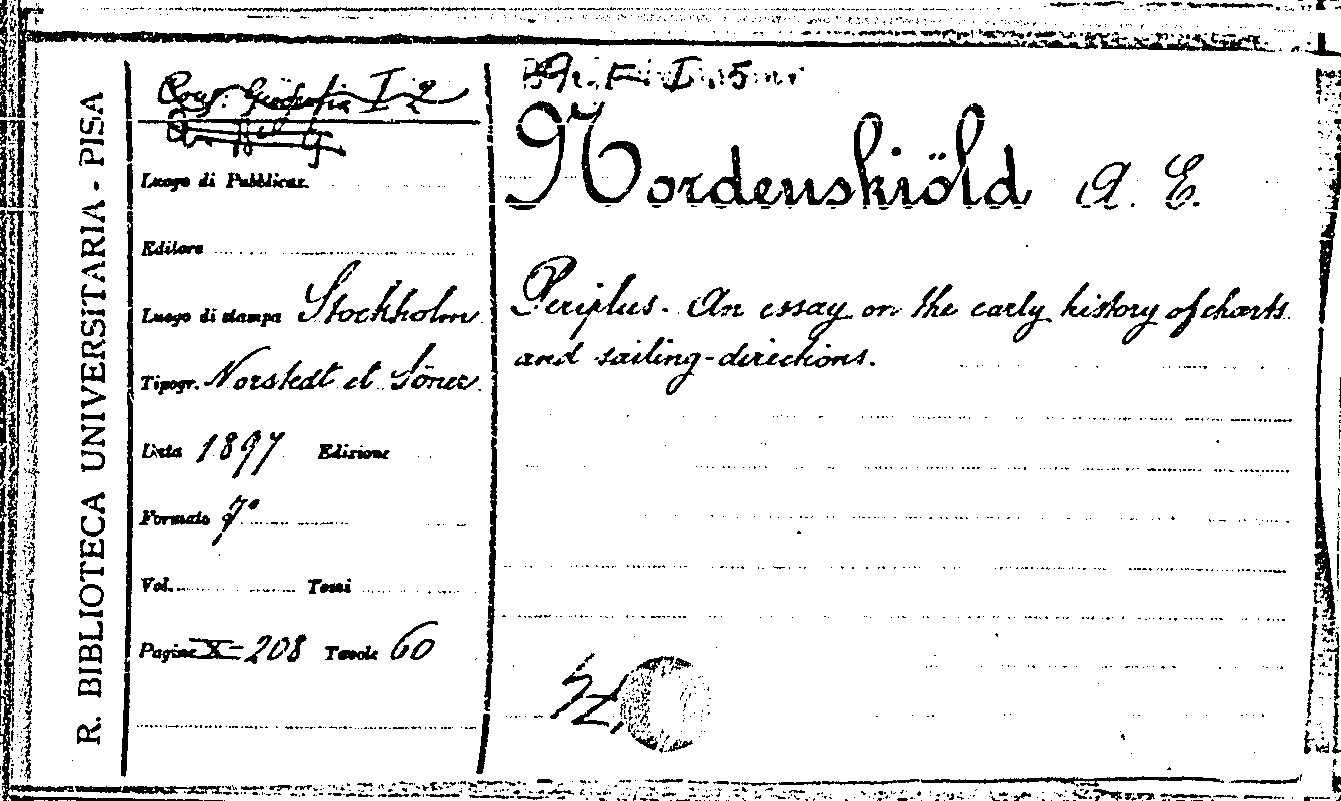 R. BIBLIOTECA UNIVERSITARIA - PISA
Geografia I 2
Luogo di Pubblicaz.
Editore
Luogo di stampa Stockholm
Tipogr. Norstedt et Söner
Data 1897 Edizione
Formato f°
Vol. Tomi
Pagine X-208 Tavole 60
Nordenskiöld A. E.
Periplus. An essay on the early history of charts
and sailing-directions.